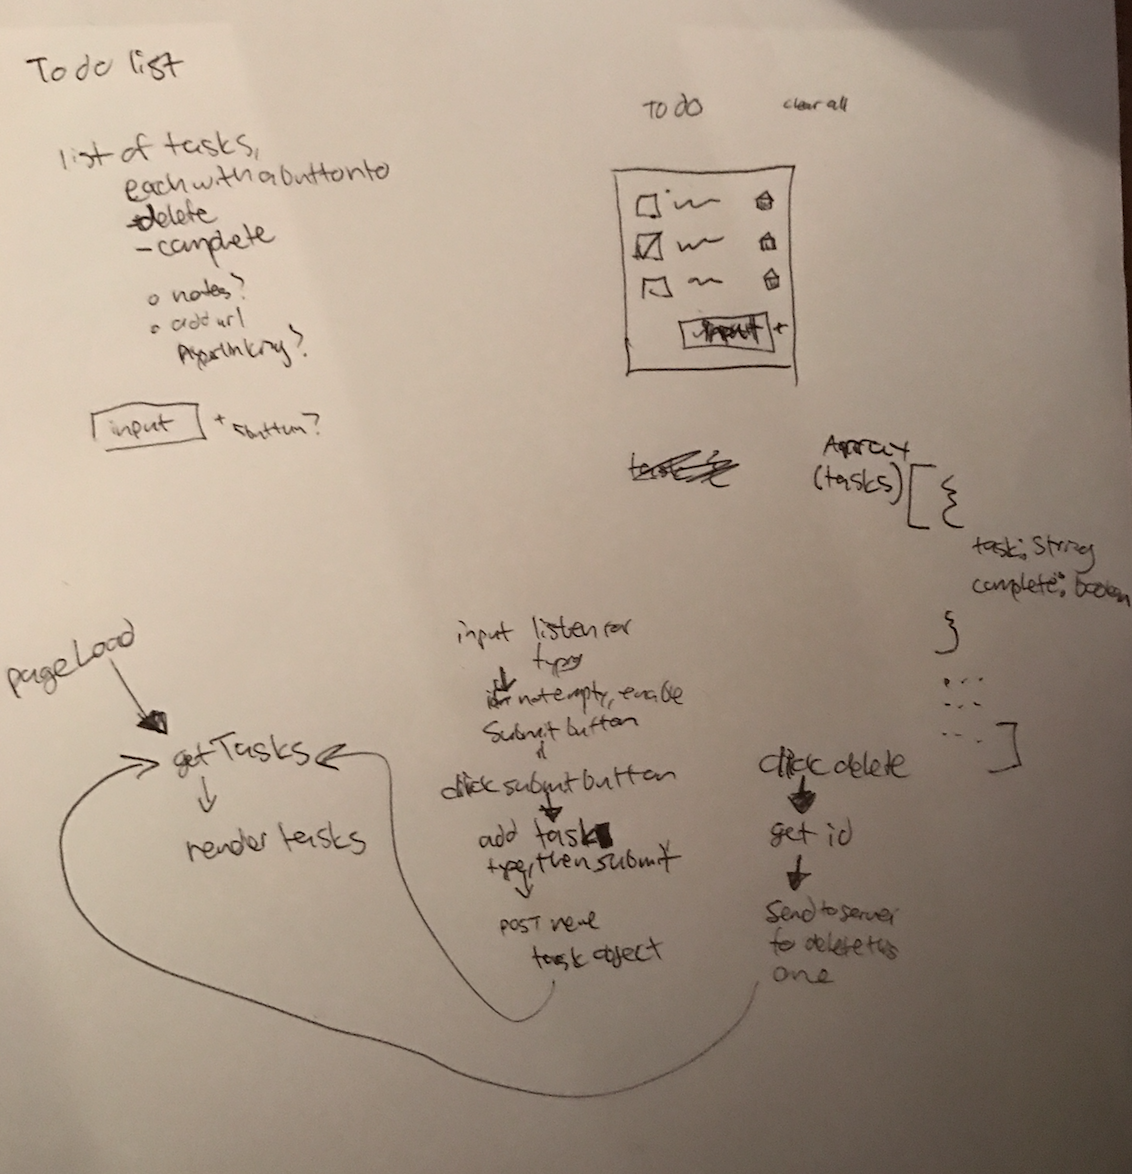 To do list
list of tasks,
each with a button to
- delete
- complete
o notes?
o add url
hyperlinking?
input + button?
To do clear all
input +
Array
(tasks) [ {
task: String
complete: boolean
}
...
...
... ]
page Load
get Tasks
render tasks
input listener
typing
not empty, enable
Submit button
click submit button
add task
type, then submit
POST new
task object
click delete
get id
Send to server
to delete this
one